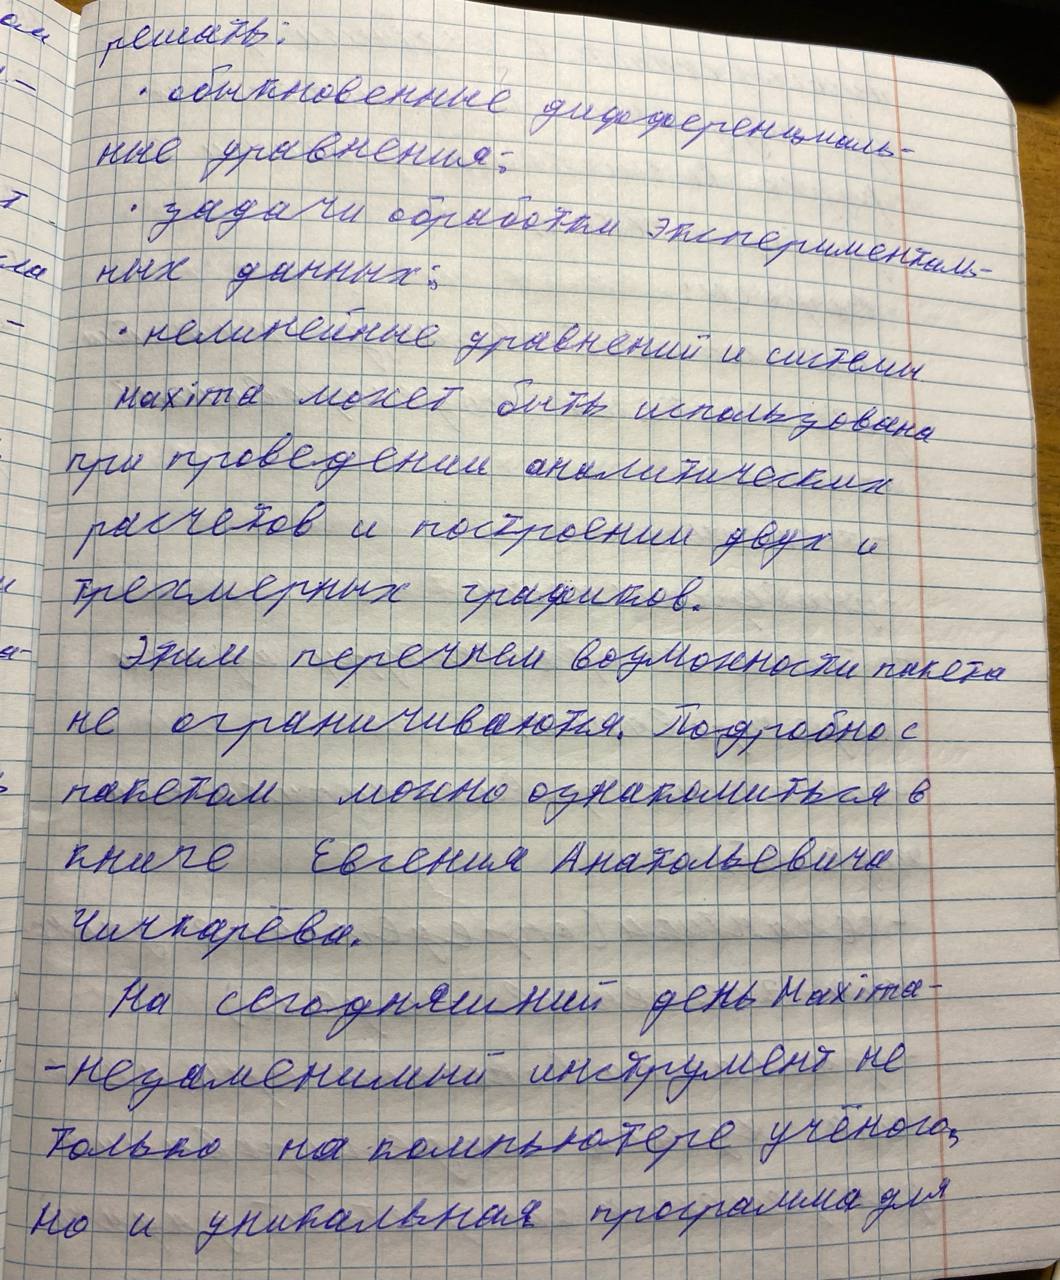 решать:
· обыкновенные дифференциаль-
ные уравнения;
· задачи обработки эксперименталь-
ных данных;
· нелинейные уравнений и системы
Maxima может быть использована
при проведении аналитических
расчетов и построении двух и
трехмерных графиков.
Этим перечнем возможности пакета
не ограничиваются. Подробно с
пакетом можно ознакомиться в
книге Евгения Анатольевича
Чичкарёва.
На сегодняшний день Maxima-
-незаменимый инструмент не
только на компьютере учёного,
но и уникальная программа для